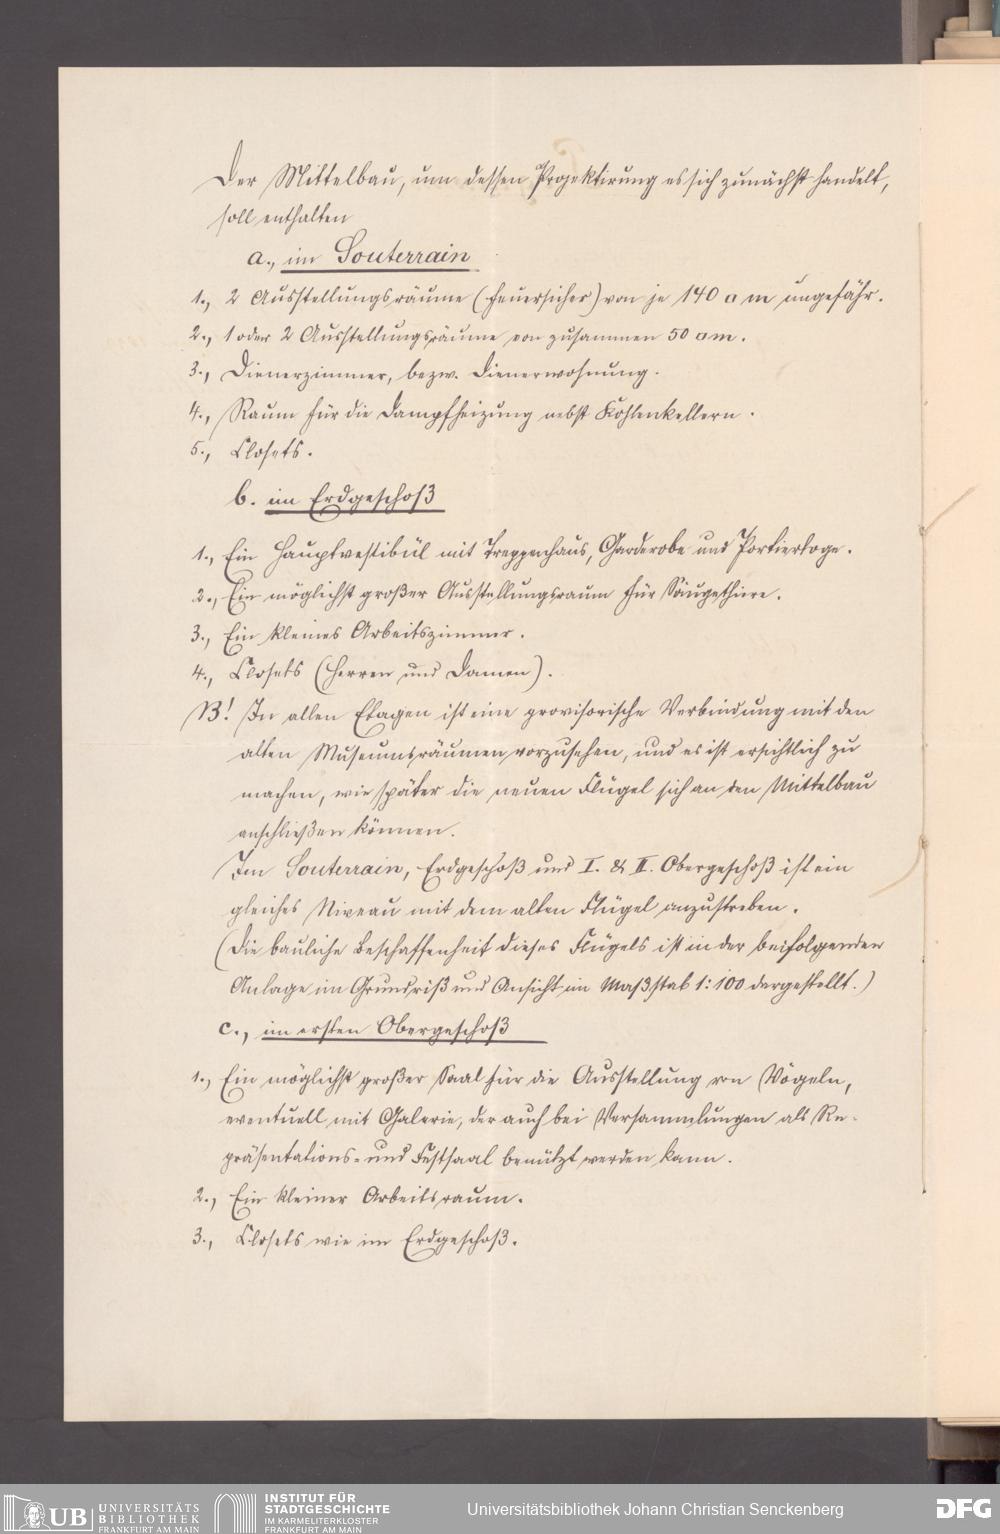 Der Mittelbau, um dessen Projektirung es sich zunächst handelt,
soll enthalten
a., im Souterrain
1., 2 Ausstellungsräume (feuersicher) von je 140 □ m ungefähr.
2., 1 oder 2 Ausstellungsräume von zusammen 50 □ m.
3., Dienerzimmer, bezw. Dienerwohnung.
4., Raum für die Dampfheizung nebst Kohlenkellern.
5., Closets.
b. im Erdgeschoß
1., Ein Hauptvestibül mit Treppenhaus, Garderobe und Portierloge.
2., Ein möglichst großer Ausstellungsraum für Säugethiere.
3., Ein kleines Arbeitszimmer.
4., Closets (Herren und Damen).
NB! In allen Etagen ist eine provisorische Verbindung mit den
alten Museumsräumen vorzusehen, und es ist ersichtlich zu
machen, wie später die neuen Flügel sich an den Mittelbau
anschließen können.
Im Souterrain, Erdgeschoß und I. & II. Obergeschoß ist ein
gleiches Niveau mit dem alten Flügel anzustreben.
(Die bauliche Beschaffenheit dieses Flügels ist in der beifolgenden
Anlage im Grundriß und Ansicht im Maßstab 1:100 dargestellt.)
c., im ersten Obergeschoß
1., Ein möglichst großer Saal für die Ausstellung von Vögeln,
eventuell mit Galerie, der auch bei Versammlungen als Re-
präsentations- und Festsaal benützt werden kann.
2., Ein kleiner Arbeitsraum.
3., Closets wie im Erdgeschoß.
UB UNIVERSITÄTS
BIBLIOTHEK
FRANKFURT AM MAIN
INSTITUT FÜR
STADTGESCHICHTE
IM KARMELITERKLOSTER
FRANKFURT AM MAIN
Universitätsbibliothek Johann Christian Senckenberg
DFG